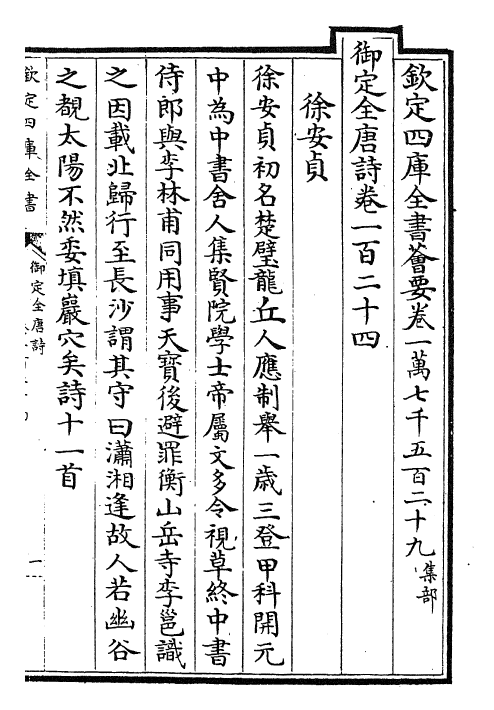 欽定四庫全書薈要卷一萬七千五百二十九集部
御定全唐詩卷一百二十四
徐安貞
徐安貞初名楚璧龍丘人應制舉一歲三登甲科開元
中為中書舍人集賢院學士帝屬文多令視草終中書
侍郎與李林甫同用事天寶後避罪衡山岳寺李邕識
之因載北歸行至長沙謂其守曰瀟湘逢故人若幽谷
之覩太陽不然委填巖穴矣詩十一首
欽定四庫全書
御定全唐詩
一